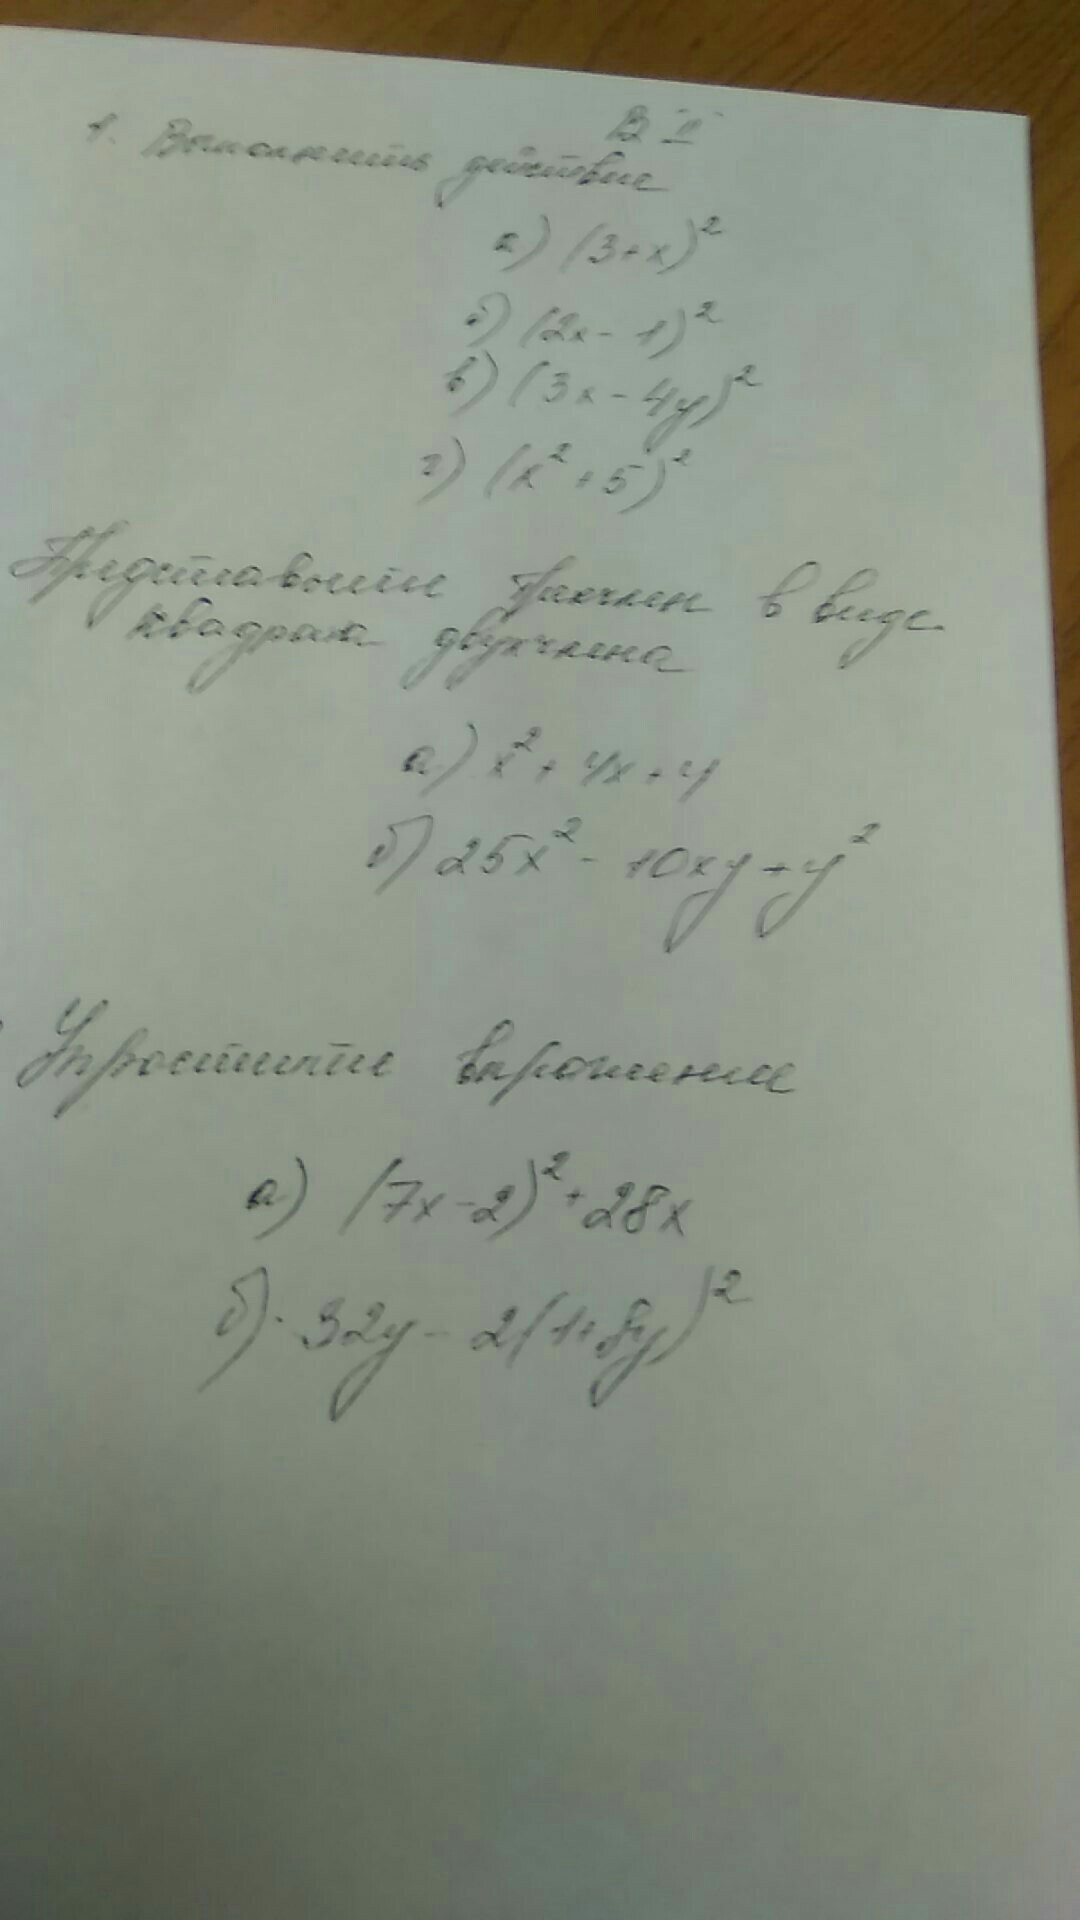 В II
1. Выполнить действие
а) (3+x)²
б) (2x - 1)²
в) (3x - 4y)²
г) (x² + 5)²
Представить трехчлен в виде
квадрата двухчлена
а) x² + 4x + 4
б) 25x² - 10xy + y²
Упростите выражение
а) (7x - 2)² + 28x
б) 32y - 2(1+8y)²